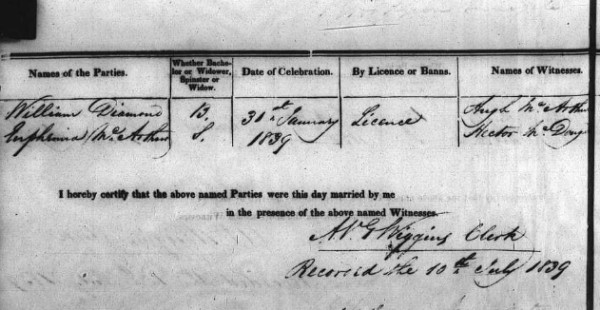 Names of the Parties. Whether Bachelor or Widower, Spinster or Widow. Date of Celebration. By Licence or Banns. Names of Witnesses.
William Diamond B. 31st January Licence Hugh McArthur
Euphemia McArthur S. 1839 Hector McDoug
I hereby certify that the above named Parties were this day married by me
in the presence of the above named Witnesses.
Wiggins Clerk
Recorded the 10th July 1839